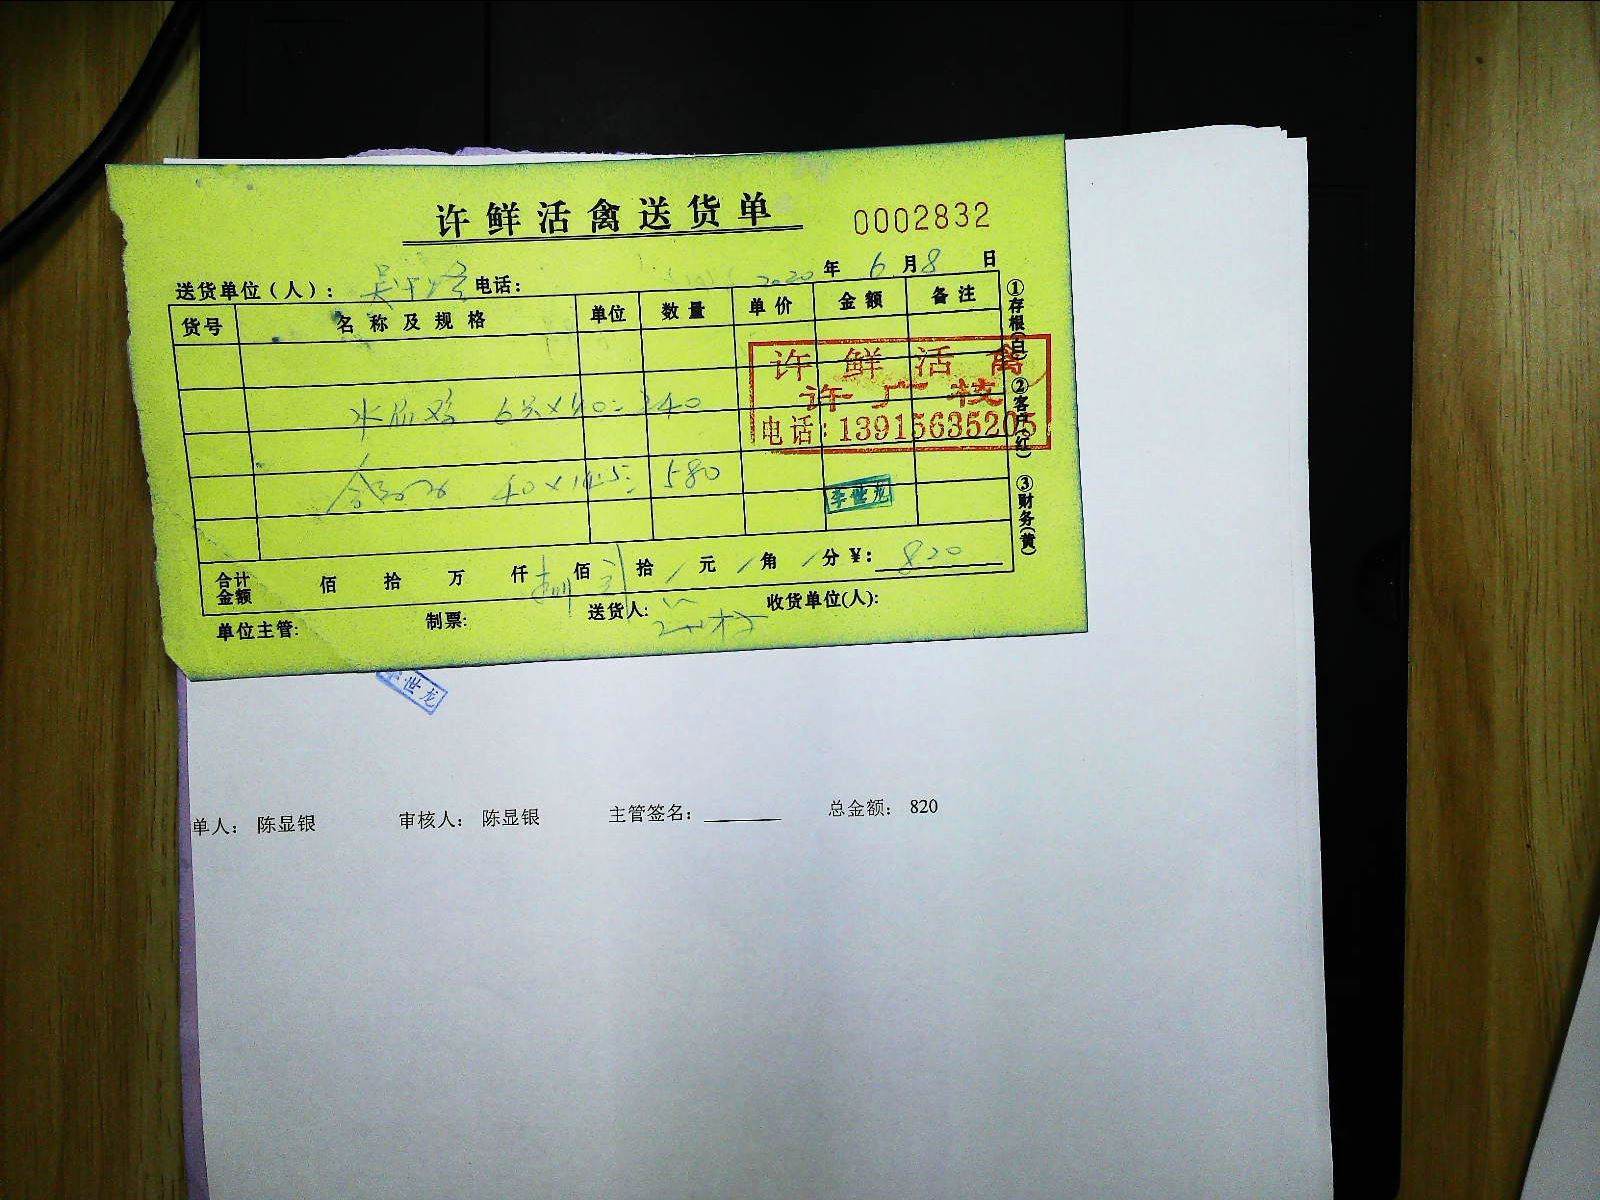 许鲜活禽送货单
0002832
送货单位(人): 电话: 2020年6月8日
货号 名称及规格 单位 数量 单价 金额 备注
6只×40=240
40×14.5=580
许鲜活禽
许广枝
电话:13915635205
李世龙
①存根(白) ②客户(红) ③财务(黄)
合计金额 佰 拾 万 仟 佰 拾 / 元 / 角 / 分 ¥: 820
单位主管: 制票: 送货人: 收货单位(人):
世龙
单人: 陈显银 审核人: 陈显银 主管签名: 总金额: 820